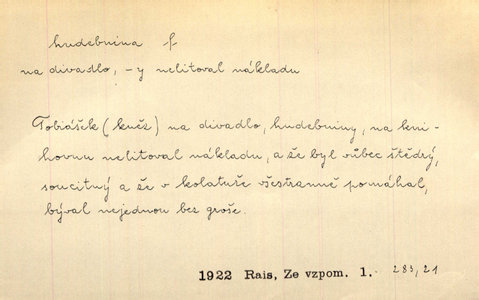 hudebnina f
na divadlo, -y nelitoval nákladu
Tobiášek (kněz) na divadlo, hudebniny, na kni-
hovnu nelitoval nákladu, a že byl vůbec štědrý,
soucitný a že v kolatuře všestranně pomáhal,
býval nejednou bez groše.
1922 Rais, Ze vzpom. 1. 283, 21